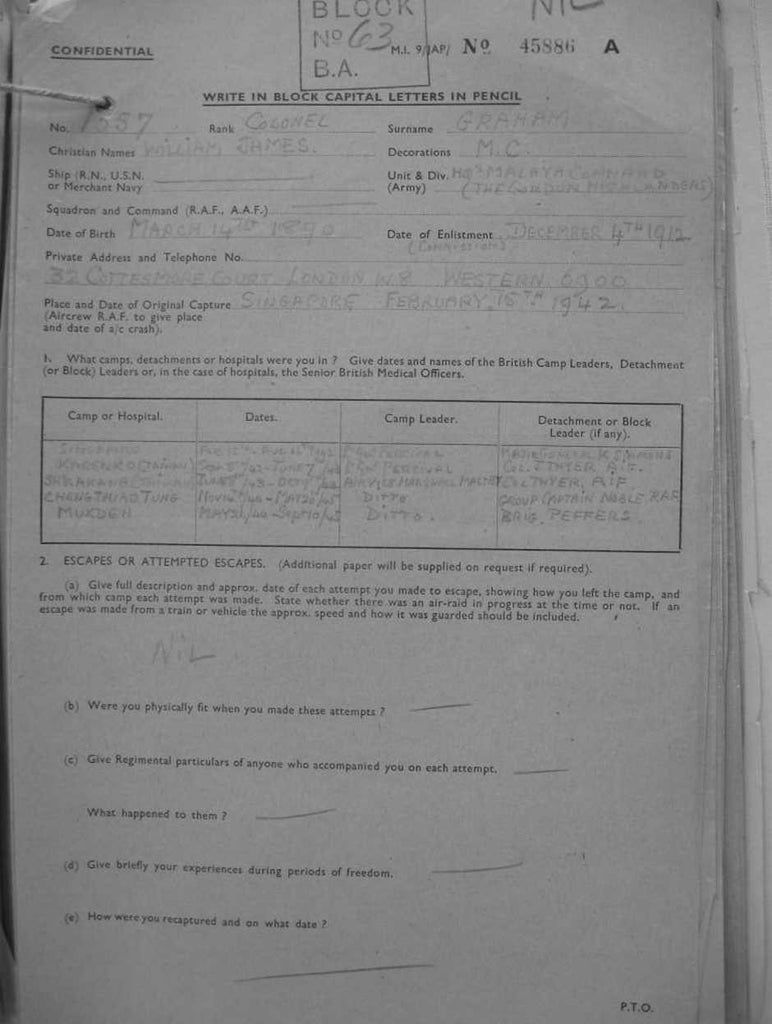 BLOCK
Nº 63
B.A.
NIL
CONFIDENTIAL
M.I. 9/JAP/ Nº 45886 A
WRITE IN BLOCK CAPITAL LETTERS IN PENCIL
No. 7557 Rank COLONEL Surname GRAHAM
Christian Names WILLIAM JAMES. Decorations M.C.
Ship (R.N., U.S.N. or Merchant Navy
Unit & Div. HQRS MALAYA COMMAND
(Army) (THE GORDON HIGHLANDERS)
Squadron and Command (R.A.F., A.A.F.)
Date of Birth MARCH 14TH 1890 Date of Enlistment DECEMBER 4TH 1912
(COMMISSION)
Private Address and Telephone No.
32 COTTESMORE COURT LONDON W.8 WESTERN 6900
Place and Date of Original Capture SINGAPORE FEBRUARY 15TH 1942.
(Aircrew R.A.F. to give place
and date of a/c crash).
1. What camps, detachments or hospitals were you in ? Give dates and names of the British Camp Leaders, Detachment
(or Block) Leaders or, in the case of hospitals, the Senior British Medical Officers.
Camp or Hospital. Dates. Camp Leader. Detachment or Block
Leader (if any).
SINGAPORE PERCIVAL MAJOR GENERAL K SIMMONS
KARENKO PERCIVAL COL. THYER A.I.F.
SHIRAKAWA AIR VICE MARSHAL MALTBY COL THYER, A.I.F
CHENG THIAO TUNG DITTO GROUP CAPTAIN NOBLE RAF
MUKDEN DITTO. BRIG. PEFFERS
2. ESCAPES OR ATTEMPTED ESCAPES. (Additional paper will be supplied on request if required).
(a) Give full description and approx. date of each attempt you made to escape, showing how you left the camp, and
from which camp each attempt was made. State whether there was an air-raid in progress at the time or not. If an
escape was made from a train or vehicle the approx. speed and how it was guarded should be included.
NIL
(b) Were you physically fit when you made these attempts ?
(c) Give Regimental particulars of anyone who accompanied you on each attempt.
What happened to them ?
(d) Give briefly your experiences during periods of freedom.
(e) How were you recaptured and on what date ?
P.T.O.